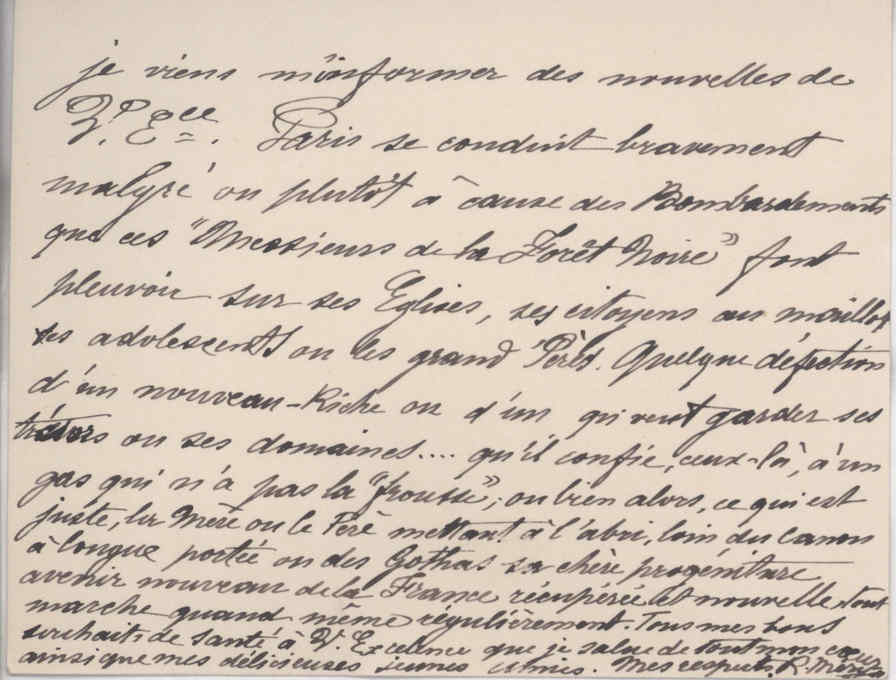 je viens m'informer des nouvelles de
V. Ece. Paris se conduit bravement
malgré ou plutôt à cause des Bombardements
que ces "Messieurs de la Forêt Noire" font
pleuvoir sur ses Eglises, ses citoyens au maillot
ses adolescents ou les grand Pères. Quelque défection
d'un nouveau-Riche ou d'un qui veut garder ses
trésors ou ses domaines.... qu'il confie, ceux-là, à un
gas qui n'a pas la "frousse"; ou bien alors, ce qui est
juste, la Mère ou le Père mettant à l'abri, loin du canon
à longue portée ou des Gothas sa chère progéniture
avenir nouveau de la France récupérée et nouvelle. Tout
marche quand même régulièrement. Tous mes bons
souhaits de santé à V. Excelence que je salue de tout mon cœur
ainsi que mes délicieuses jeunes amies. Mes respects. R.